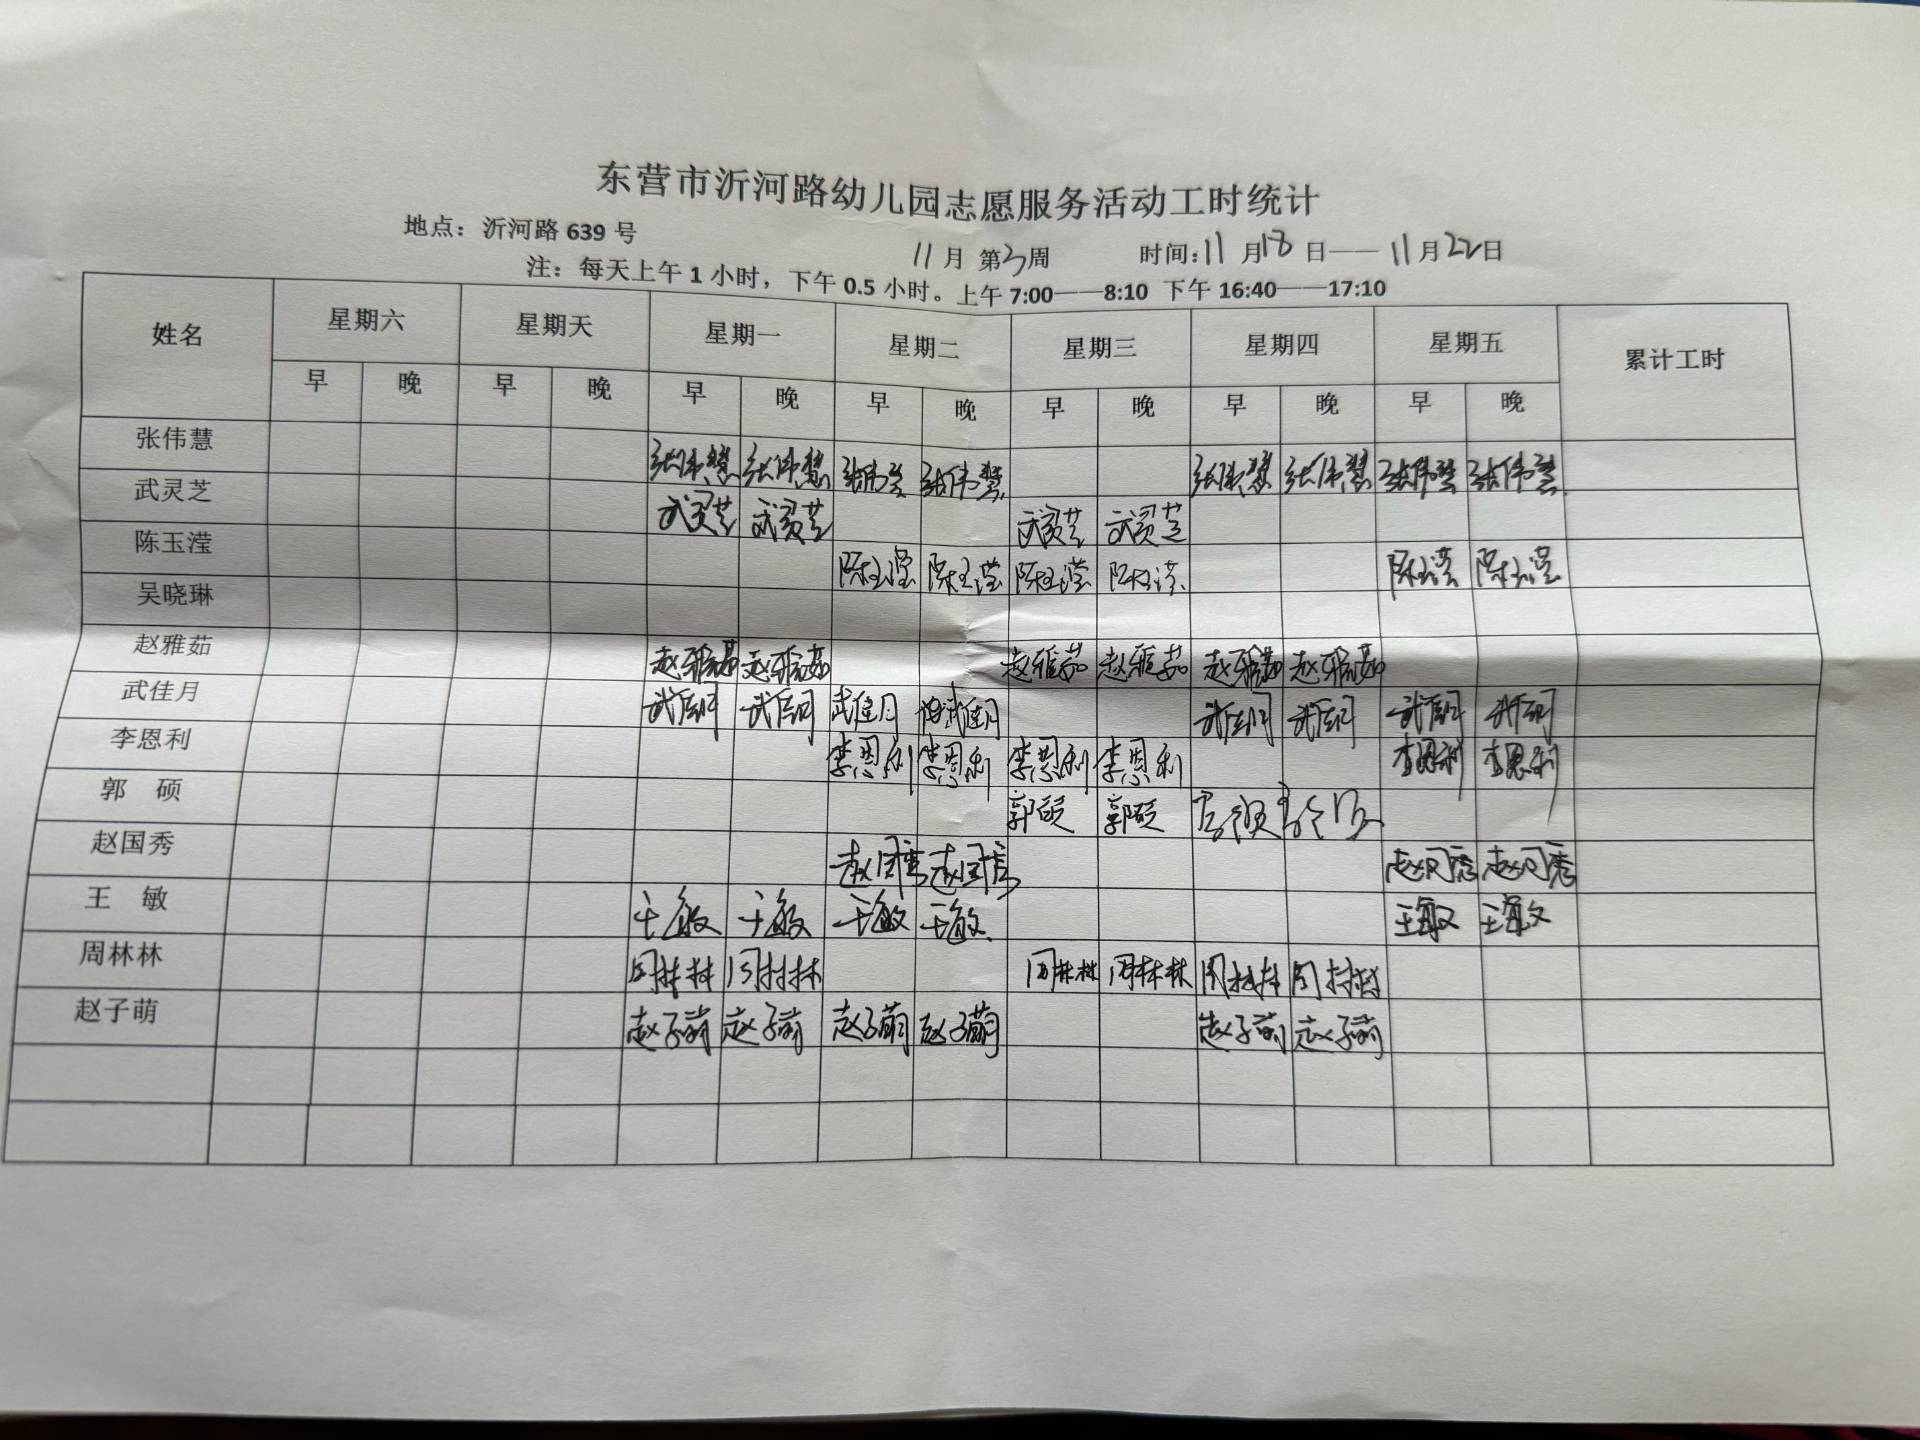 东营市沂河路幼儿园志愿服务活动工时统计
地点：沂河路 639 号 11月 第3周 时间：11月18日——11月22日
注：每天上午 1 小时，下午 0.5 小时。上午 7:00——8:10 下午 16:40——17:10
姓名 星期六 星期天 星期一 星期二 星期三 星期四 星期五 累计工时
早 晚 早 晚 早 晚 早 晚 早 晚 早 晚 早 晚
张伟慧 张伟慧 张伟慧 张伟慧 张伟慧 张伟慧 张伟慧 张伟慧 张伟慧
武灵芝 武灵芝 武灵芝 武灵芝 武灵芝
陈玉滢 陈玉滢 陈玉滢 陈玉滢 陈玉滢 陈玉滢 陈玉滢
吴晓琳
赵雅茹 赵雅茹 赵雅茹 赵雅茹 赵雅茹 赵雅茹 赵雅茹
武佳月 武佳月 武佳月 武佳月 武佳月 武佳月 武佳月 武佳月 武佳月
李恩利 李恩利 李恩利 李恩利 李恩利 李恩利 李恩利
郭 硕 郭硕 郭硕
赵国秀 赵国秀 赵国秀 赵国秀 赵国秀
王 敏 王敏 王敏 王敏 王敏 王敏 王敏
周林林 周林林 周林林 周林林 周林林 周林林 周林林
赵子萌 赵子萌 赵子萌 赵子萌 赵子萌 赵子萌 赵子萌